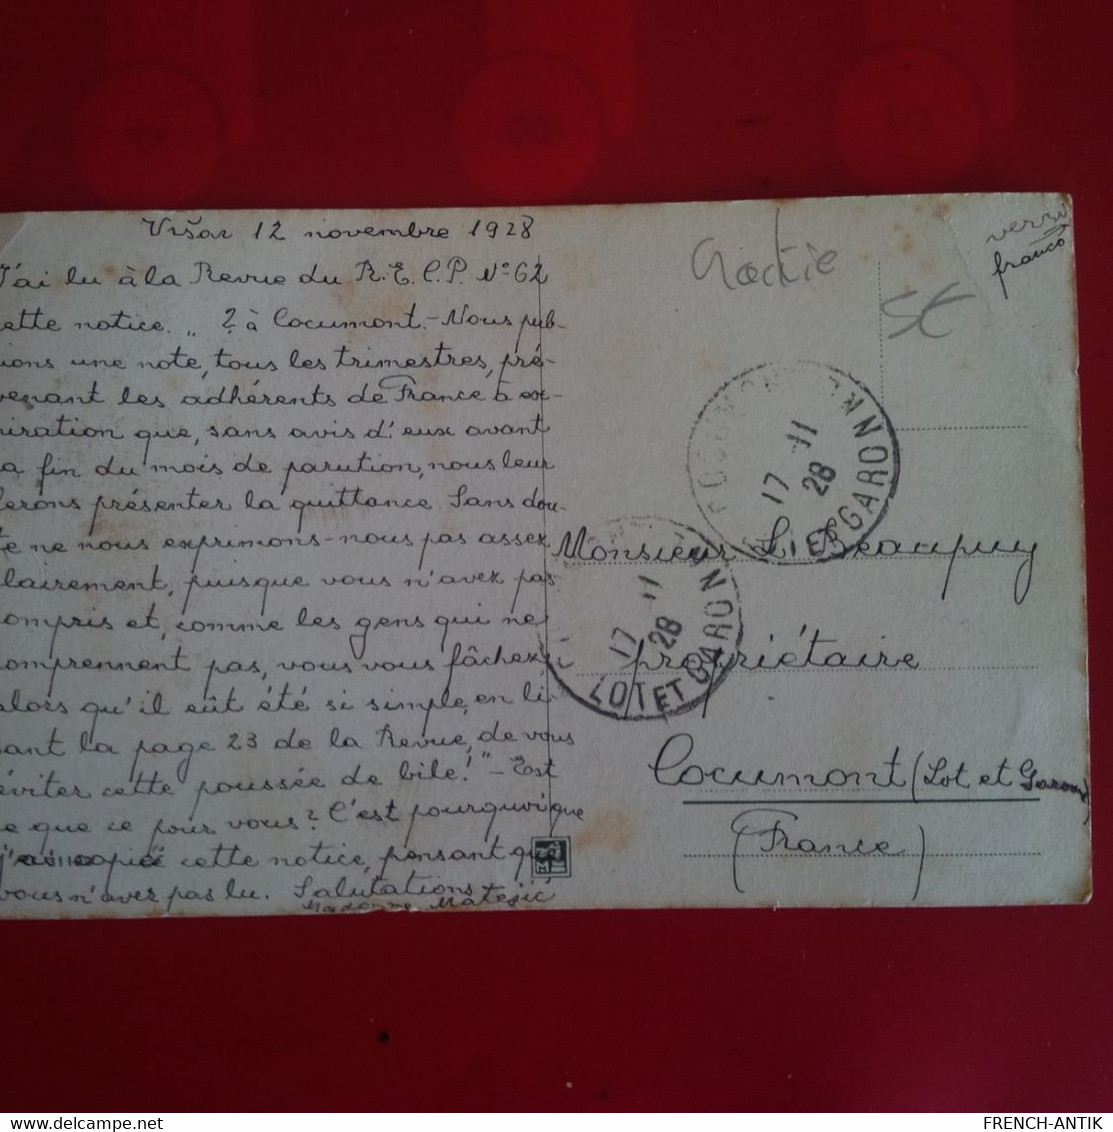 Višar 12 novembre 1928
J'ai lu à la Revue du R.E.C.P. N° 62
cette notice. „ ? à Cocumont. - Nous pub-
lions une note, tous les trimestres, pré-
venant les adhérents de France à ex-
piration que, sans avis d'eux avant
la fin du mois de parution, nous leur
ferons présenter la quittance. Sans dou-
te ne nous exprimons-nous pas assez
clairement, puisque vous n'avez pas
compris et, comme les gens qui ne
comprennent pas, vous vous fâchez;
alors qu'il eût été si simple, en li-
sant la page 23 de la Revue, de vous
éviter cette poussée de bile!" - Est
ce que ce pour vous? C'est pourquoi que
j'ai copié cette notice, pensant que
vous n'avez pas lu. Salutations
Matejić
verso
franco
Croatie
St
17 11 28
LOT ET GARONNE
17 11 28
LOT ET GARONNE
Monsieur L. Beaupuy
propriétaire
Cocumont (Lot et Garonne)
(France)
FRENCH-ANTIK
www.delcampe.net